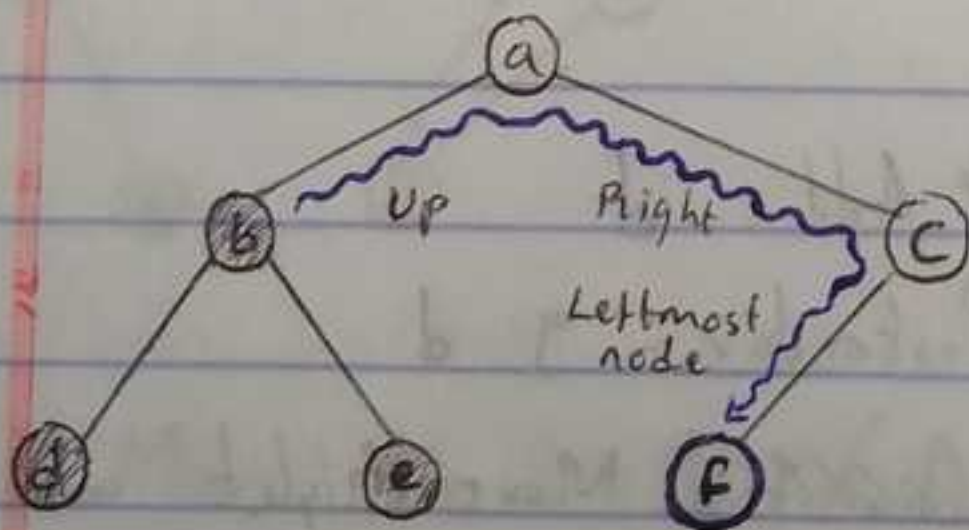 a
Up
Right
b
C
Leftmost
node
d
e
f